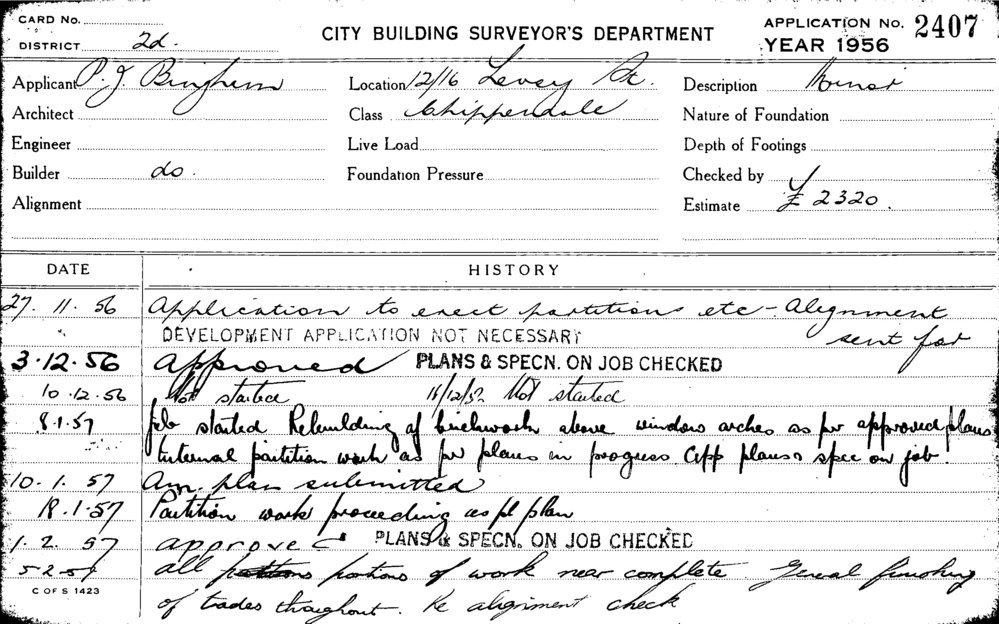 CARD No.
DISTRICT 2d.
CITY BUILDING SURVEYOR'S DEPARTMENT
APPLICATION No. 2407
YEAR 1956
Applicant P. J. Bingham Location 12/16 Levey St. Description
Architect Class Chippendale Nature of Foundation
Engineer Live Load Depth of Footings
Builder do. Foundation Pressure Checked by
Alignment Estimate £ 2320.
DATE HISTORY
27. 11. 56 Application to erect partitions etc - Alignment
DEVELOPMENT APPLICATION NOT NECESSARY sent for
3.12.56 approved PLANS & SPECN. ON JOB CHECKED
10.12.56 Not started Not started
8.1.57 Job started Rebuilding of brickwork above window arches as per approved plans
Internal partition work as per plans in progress App plans & spec on job.
10. 1. 57 Am. plan submitted
18.1.57 Partition work proceeding as pl plan
1. 2. 57 approved PLANS & SPECN. ON JOB CHECKED
5.2.57 all portions of work near complete Geneal finishing
of trades thraighout. Re alignment check
C OF S 1423